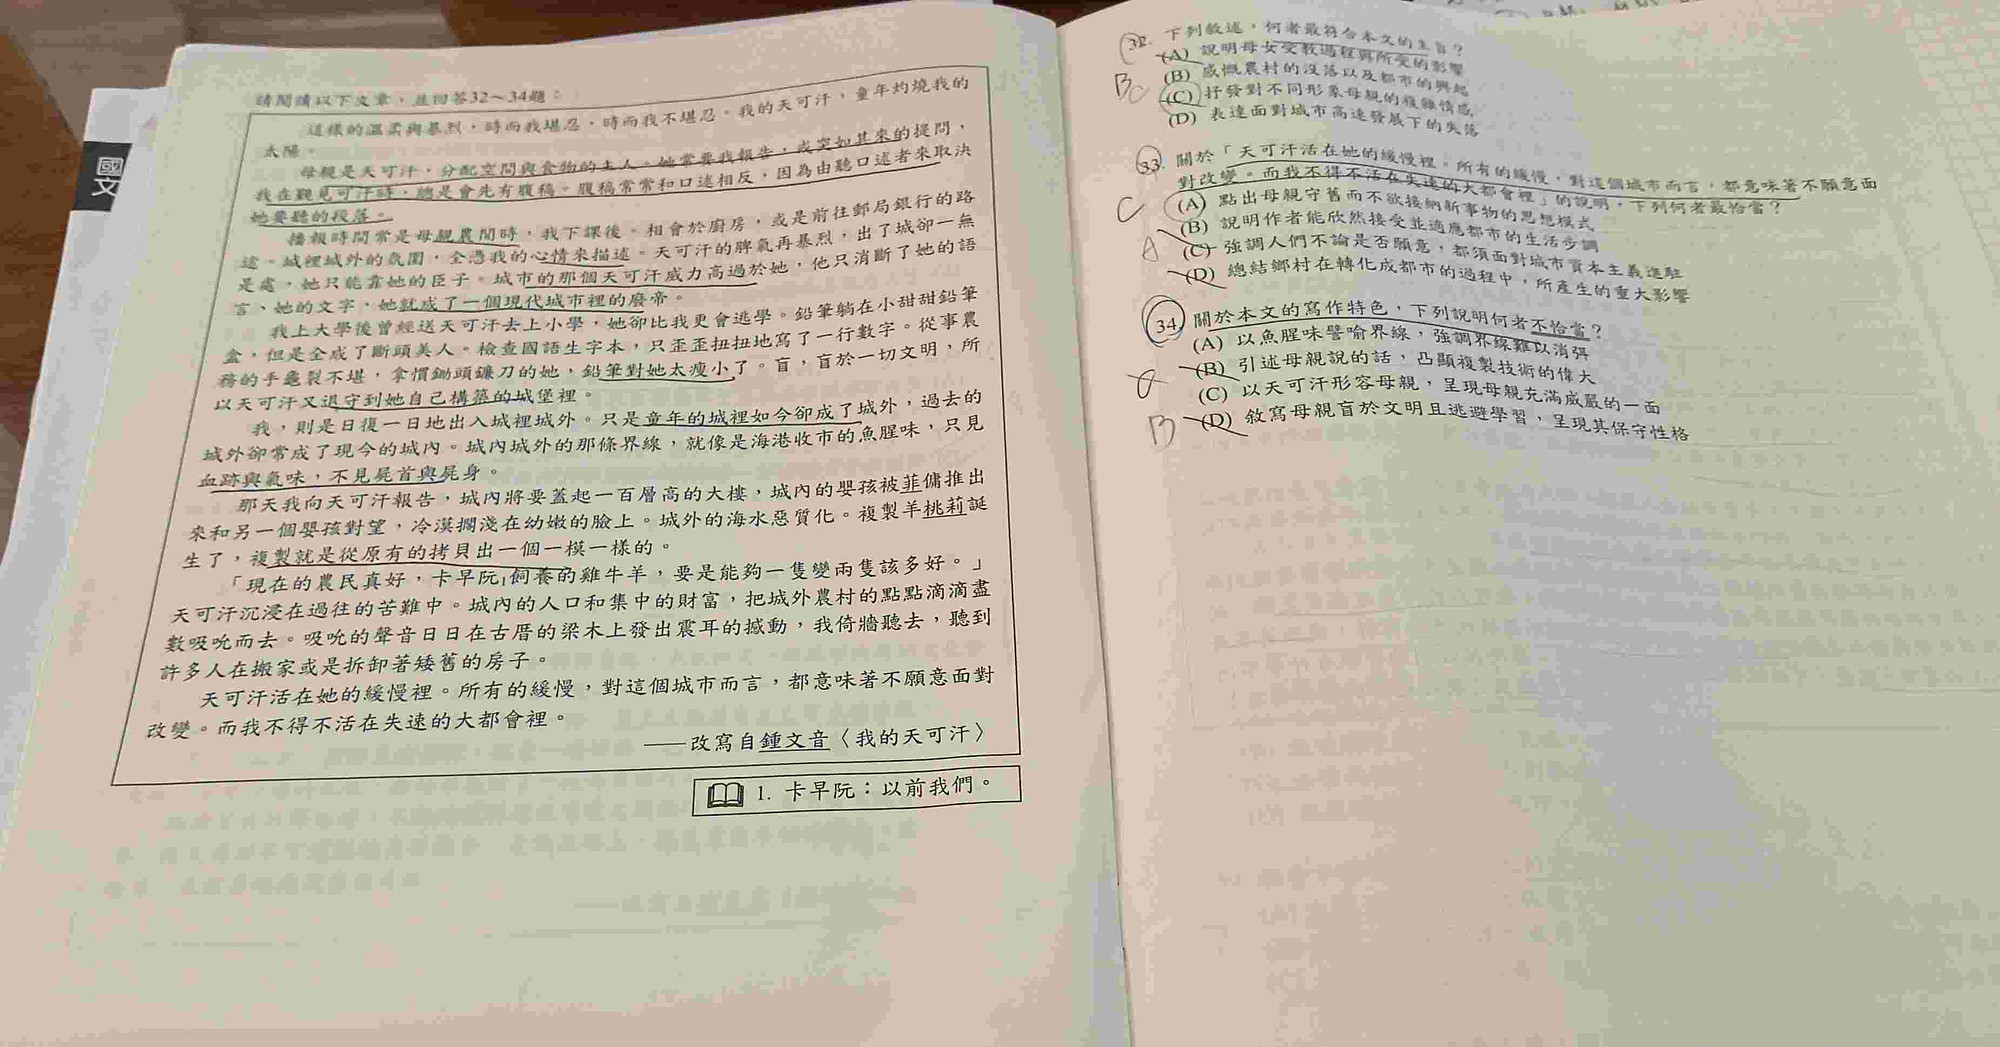 國文
請閱讀以下文章，並回答32～34題：
這樣的溫柔與暴烈，時而我堪忍，時而我不堪忍。我的天可汗，童年灼燒我的
太陽。
母親是天可汗，分配空間與食物的主人。她常要我報告，或突如其來的提問，
我在聽見可汗時，總是會先有腹稿。腹稿常常和口述相反，因為由聽口述者來取決
她要聽的段落。
播報時間常是母親農閒時，我下課後。相會於廚房，或是前往郵局銀行的路
途。城裡城外的氛圍，全憑我的心情來描述。天可汗的脾氣再暴烈，出了城卻一無
是處，她只能靠她的臣子。城市的那個天可汗威力高過於她，他只消斷了她的語
言、她的文字，她就成了一個現代城市裡的廢帝。
我上大學後曾經送天可汗去上小學，她卻比我更會逃學。鉛筆躺在小甜甜鉛筆
盒，但是全成了斷頭美人。檢查國語生字本，只歪歪扭扭地寫了一行數字。從事農
務的手龜裂不堪，拿慣鋤頭鐮刀的她，鉛筆對她太瘦小了。盲，盲於一切文明，所
以天可汗又退守到她自己構築的城堡裡。
我，則是日復一日地出入城裡城外。只是童年的城裡如今卻成了城外，過去的
城外卻常成了現今的城內。城內城外的那條界線，就像是海港收市的魚腥味，只見
血跡與氣味，不見屍首與屍身。
那天我向天可汗報告，城內將要蓋起一百層高的大樓，城內的嬰孩被菲傭推出
來和另一個嬰孩對望，冷漠擱淺在幼嫩的臉上。城外的海水惡質化。複製羊桃莉誕
生了，複製就是從原有的拷貝出一個一模一樣的。
「現在的農民真好，卡早阮1飼養的雞牛羊，要是能夠一隻變兩隻該多好。」
天可汗沉浸在過往的苦難中。城內的人口和集中的財富，把城外農村的點點滴滴盡
數吸吮而去。吸吮的聲音日日在古厝的梁木上發出震耳的撼動，我倚牆聽去，聽到
許多人在搬家或是拆卸著矮舊的房子。
天可汗活在她的緩慢裡。所有的緩慢，對這個城市而言，都意味著不願意面對
改變。而我不得不活在失速的大都會裡。
——改寫自鍾文音〈我的天可汗〉
1. 卡早阮：以前我們。
32. 下列敘述，何者最符合本文的主旨？
(A) 說明母女受教過程與所受的影響
BC (B) 感慨農村的沒落以及都市的興起
(C) 抒發對不同形象母親的複雜情感
(D) 表達面對城市高速發展下的失落
33. 關於「天可汗活在她的緩慢裡。所有的緩慢，對這個城市而言，都意味著不願意面
對改變。而我不得不活在失速的大都會裡」的說明，下列何者最恰當？
C (A) 點出母親守舊而不欲接納新事物的思想模式
(B) 說明作者能欣然接受並適應都市的生活步調
A (C) 強調人們不論是否願意，都須面對城市資本主義進駐
(D) 總結鄉村在轉化成都市的過程中，所產生的重大影響
34. 關於本文的寫作特色，下列說明何者不恰當？
(A) 以魚腥味譬喻界線，強調界線難以消弭
(B) 引述母親說的話，凸顯複製技術的偉大
(C) 以天可汗形容母親，呈現母親充滿威嚴的一面
B (D) 敘寫母親盲於文明且逃避學習，呈現其保守性格